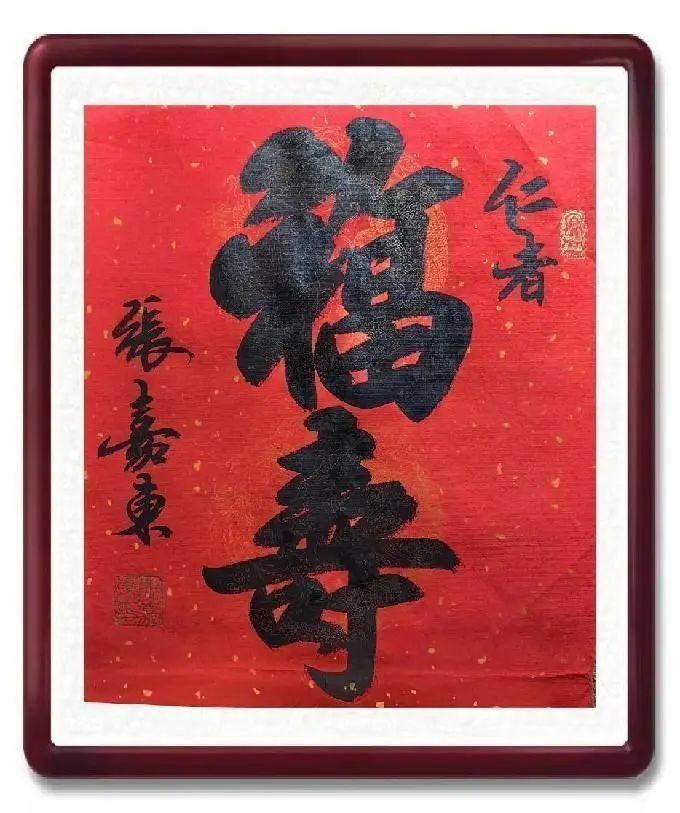 仁者
福壽
張嘉東